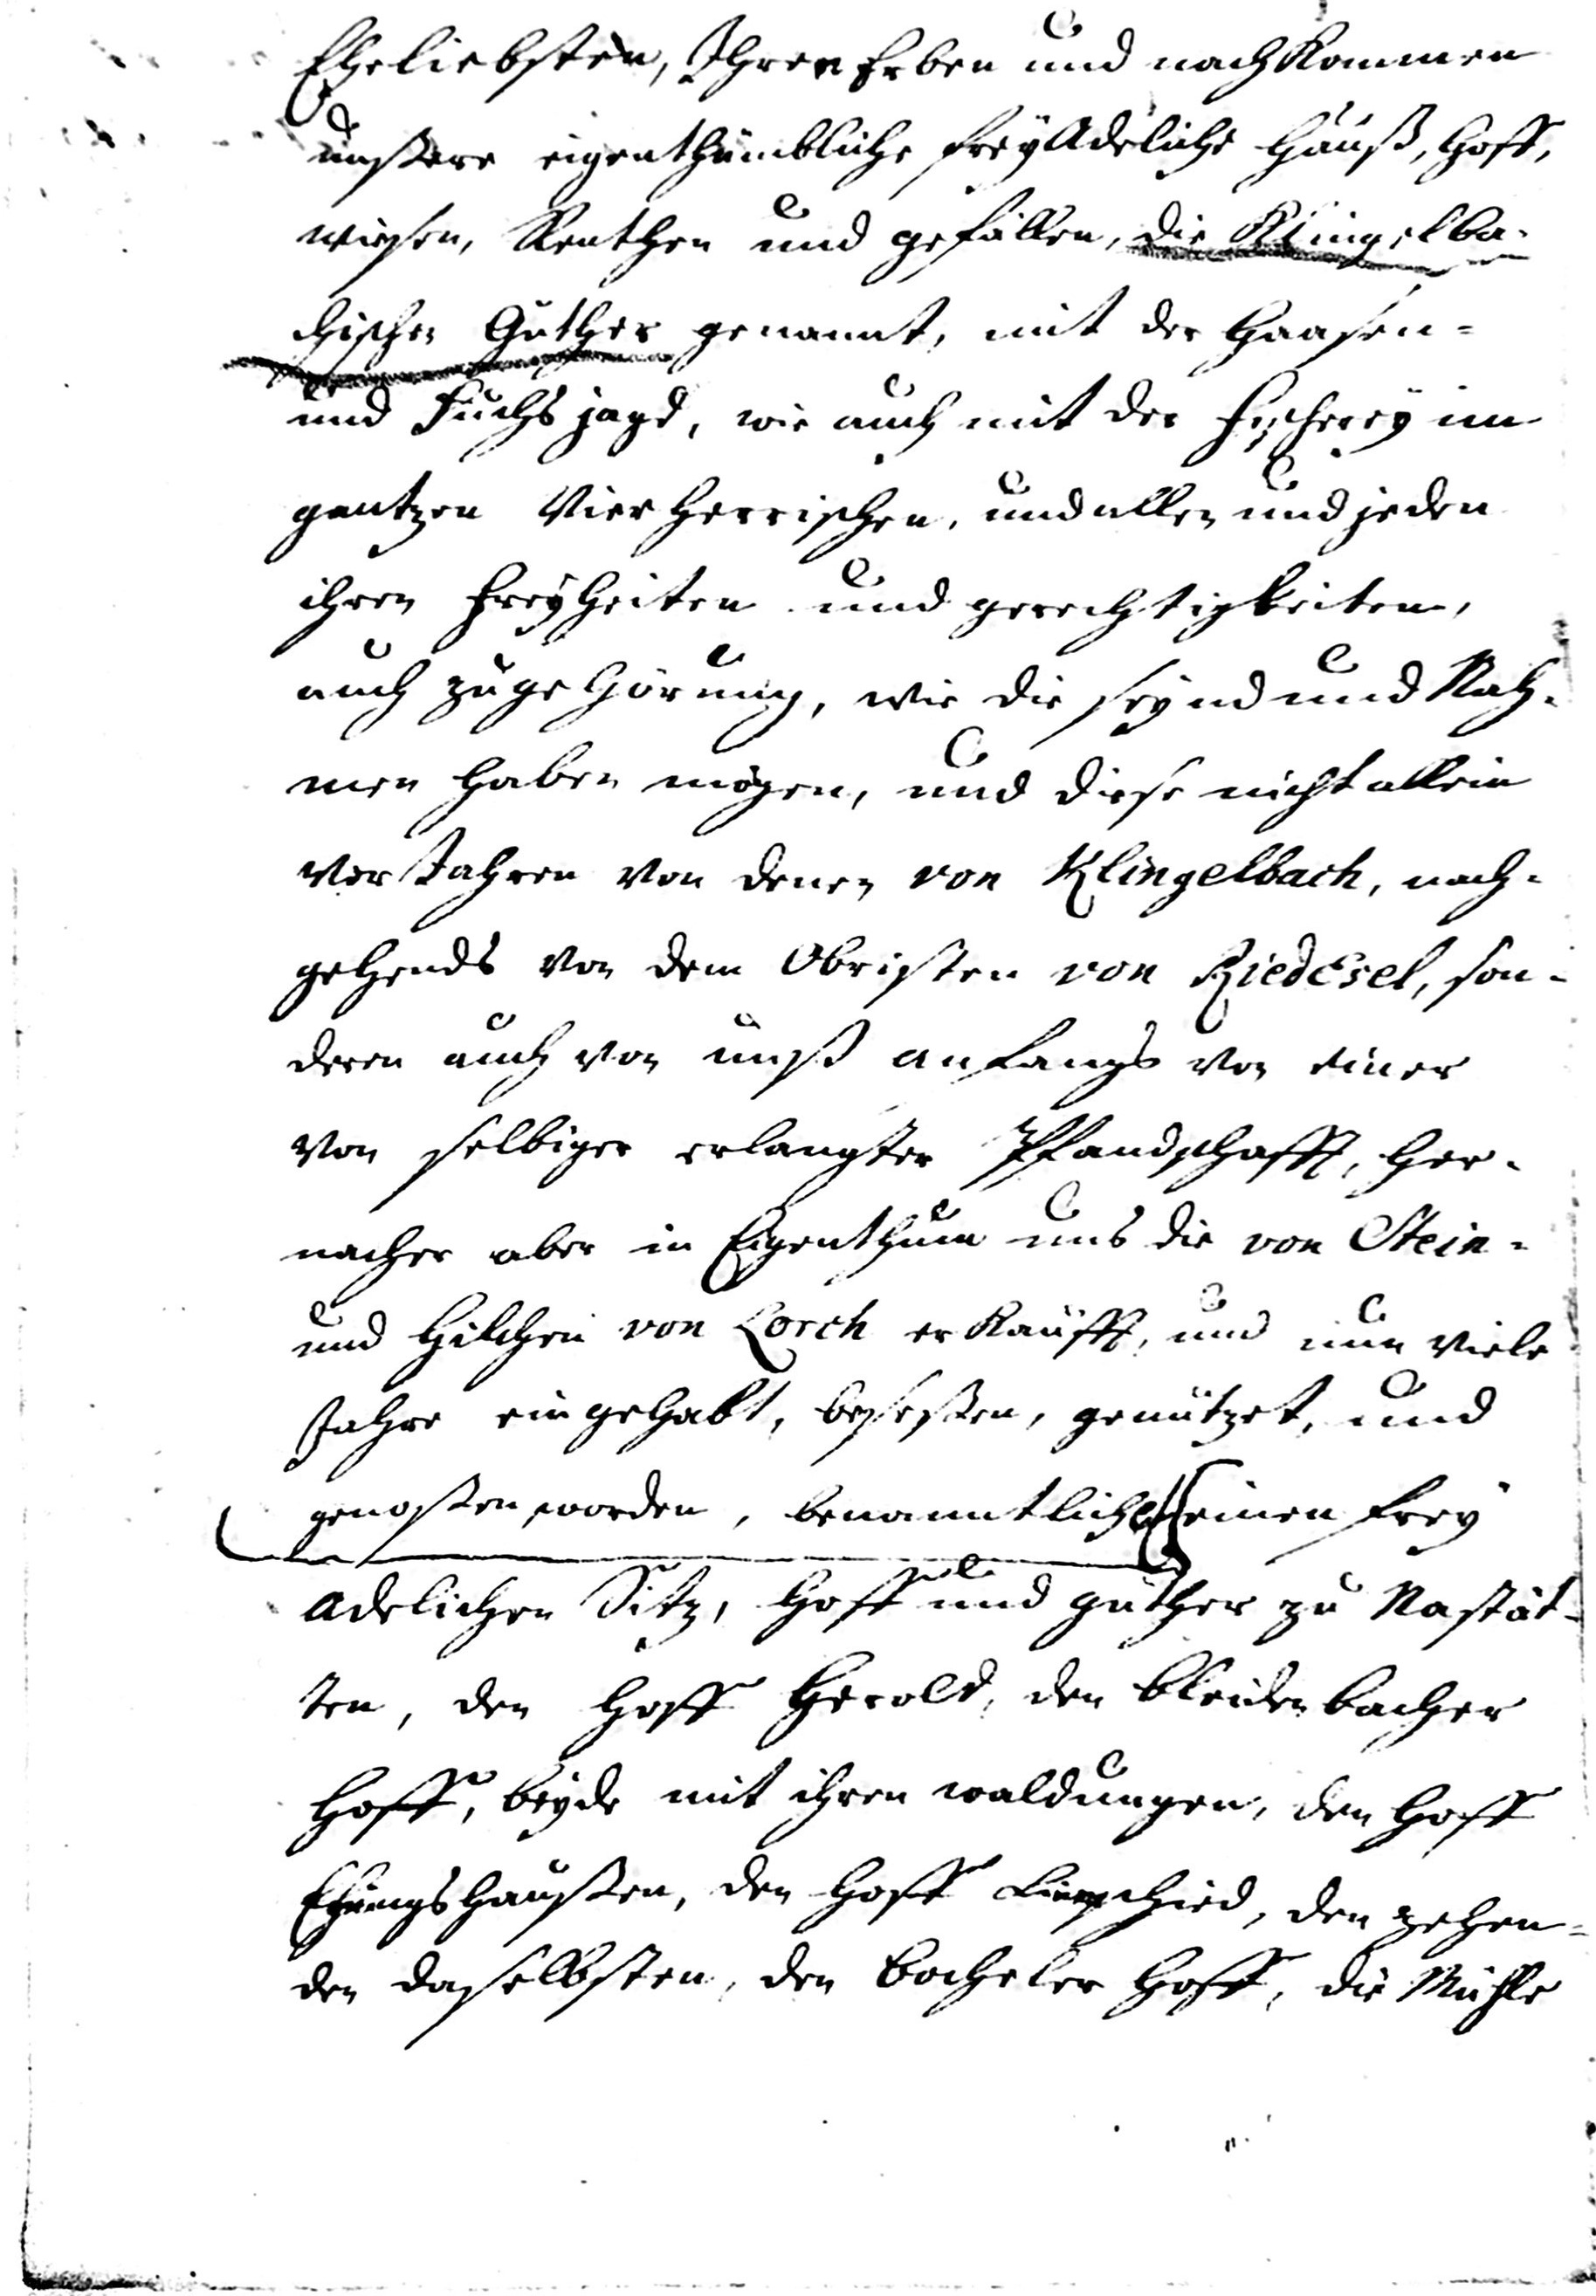 Eheliebsten, Ihren Erben und nachkommen
unßere eigenthümbliche frey Adeliche Häuß, Hoff,
wiesen, Renthen und gefällen, die Klingelba-
chische Güther genannt, mit der Haasen-
und Fuchs jagd, wie auch mit der Fischerey im
gantzen Vierherrischen, und allen und jeden
ihren Freyheiten und gerechtigkeiten,
auch zugehörung, wie die seynd und Nah-
men haben mögen, und diese nicht allein
vor Jahren von denen von Klingelbach, nach-
gehends von dem Obristen von RiedEsel, son-
deren auch von unß anfangs von einer
von selbiger erlangter Pfandschafft, her-
nacher aber in Eigenthum uns die von Stein-
und Hilchen von Lorch erkaufft, und nun viele
Jahre eingehabt, beseßen, genützet, und
genoßen worden, benanntlichen einen frey
adelichen Sitz, Hoff und güther zu Nastät-
ten, den Hoff Herold, den bleidenbacher
Hoff, beyde mit ihren waldungen, den Hoff
haußen, den Hoff Lippschied, den zehen-
den daselbsten, den bocheler Hoff, die Mühle